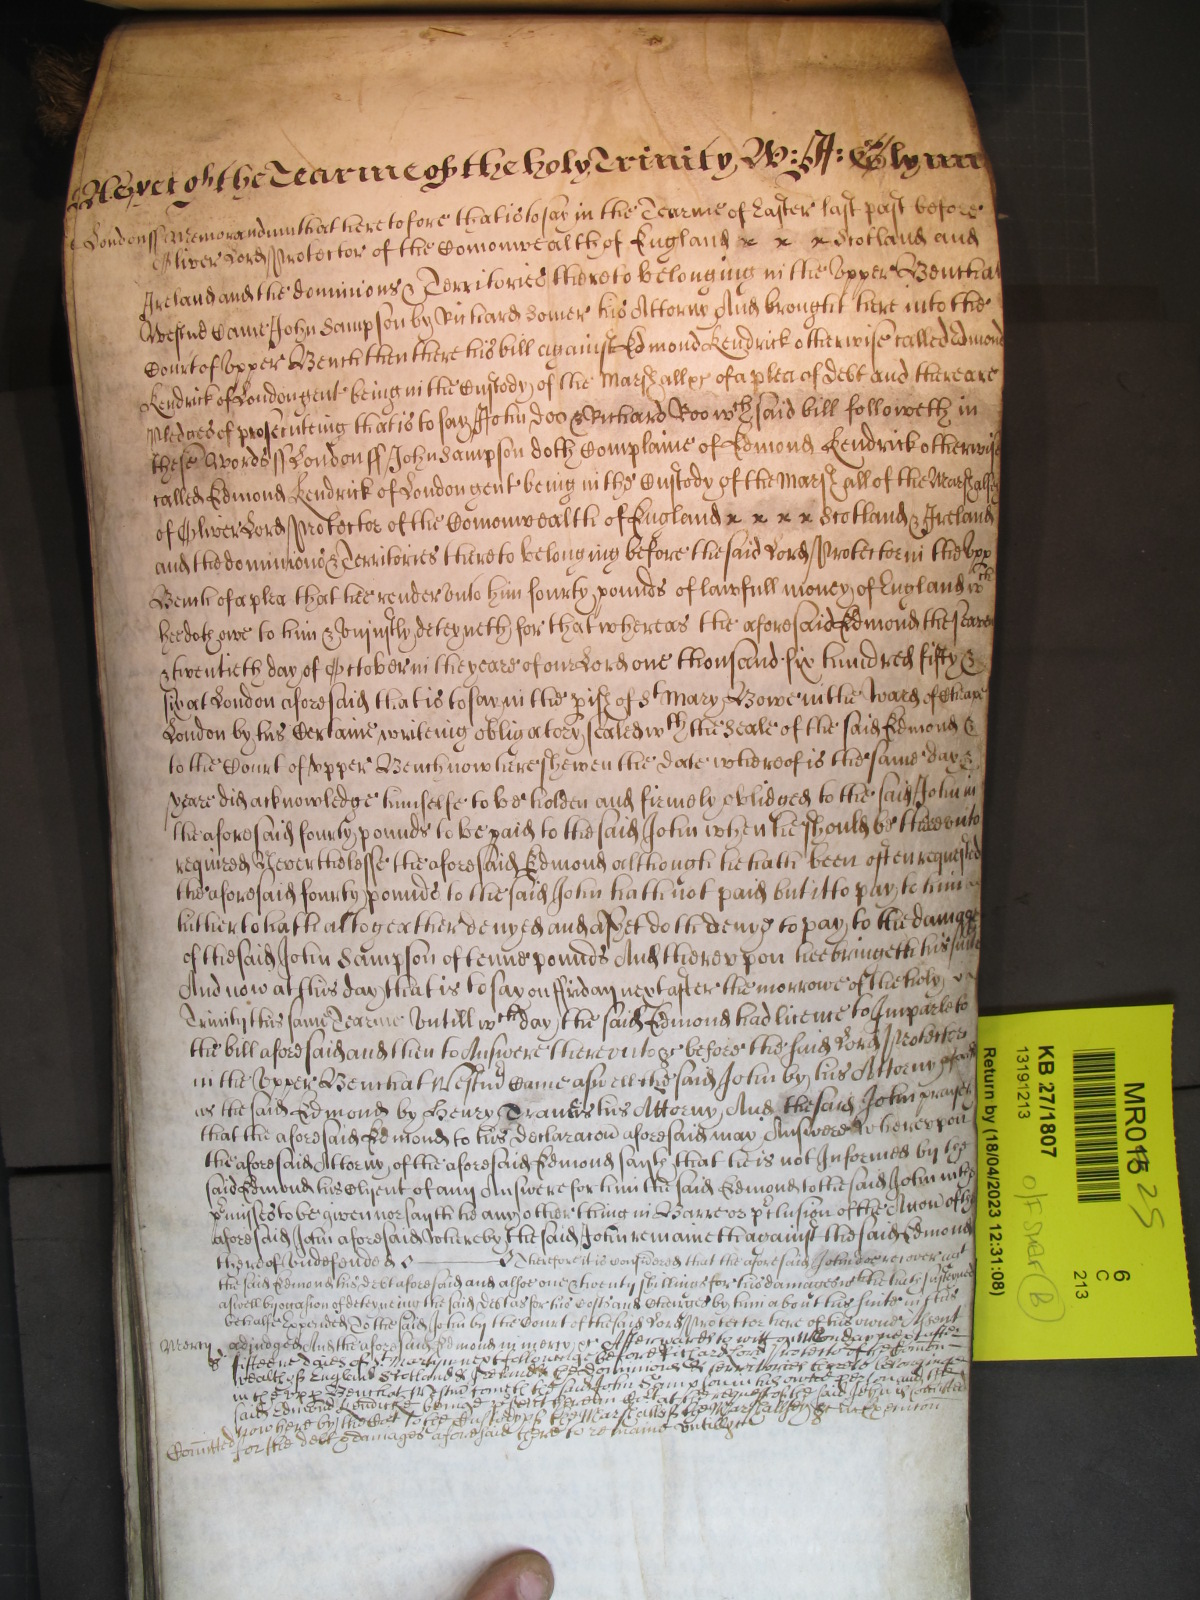 Yet of the Tearme of the holy Trinity W: A: Glynn
London ss Memorandum that heretofore that is to say in the Tearme of Easter last past before
Oliver Lord Protector of the Comonwealth of England x x x Scotland and
Ireland and the dominions & Territories thereto belonging in the Upper Bench at
Westmr Came John Sampson by Richard Somer his Attorny And brought here into the
Court of Upper Bench then there his bill against Edmond Kendrick otherwise called Edmond
Kendrick of London gent being in the Custody of the Marshall &c of a plea of debt and there are
Pledges of prosecuteing that is to say John Doo & Richard Roo wch said bill followeth in
these words ss London ss John Sampson doth Complaine of Edmond Kendrick otherwise
called Edmond Kendrick of London gent being in the Custody of the Marshall of the Marshalsey
of Oliver Lord Protector of the Comonwealth of England x x x x Scotland & Ireland
and the dominions & Territories thereto belonging before the said Lord Protector in the Upp
Bench of a plea that hee render unto him fourty pounds of lawfull money of England wch
hee doth owe to him & Uniustly deteyneth for that whereas the aforesaid Edmond the seaven
& twentieth day of October in the yeare of our Lord one thousand six hundred fifty &
six at London aforesaid that is to say in the pish of St Mary Bowe in the Ward of Cheape
London by his Certaine writeing obligatory sealed wth the Seale of the said Edmond &
to the Court of Upper Bench now here shewen the date whereof is the same day &
yeare did acknowledge himselfe to be holden and firmely obliedged to the said John in
the aforesaid fourty pounds to be paid to the said John when hee should be thereunto
required Neverthelesse the aforesaid Edmond although he hath been often requested
the aforesaid fourty pounds to the said John hath not paid but it to pay to him
hitherto hath altogeather denyed and as yet doth deny to pay to the damage
of the said John Sampson of tenne pounds And thereupon hee bringeth his suite
And now at this day that is to say on ffriday next after the morrowe of the holy
Trinity this same Tearme Untill wch day the said Edmond had licence to Imparle to
the bill aforesaid and then to Answere thereunto &c before the said Lord Protector
in the Upper Bench at Westmr Came aswell the said John by his Attorny aforesaid
as the said Edmond by Henry Travis his Attorny And the said John prayeth
that the aforesaid Edmond to his declaracon aforesaid may Answere Whereupon
the aforesaid Attorny of the aforesaid Edmond sayth that he is not Informed by the
said Edmond his Clyent of any Answere for him the said Edmond to the said John in the
pmisses to be given nor sayth he any other thing in Barre or pclusion of the Accon of the
aforesaid John aforesaid whereby the said John remaineth against the said Edmond
thereof undefended &c Therefore it is considered that the aforesaid John doe recover agt
the said Edmond his debt aforesaid and alsoe one & twenty shillings for his damages wch he hath susteyned
aswell by occasion of deteyneing the said debt as for his Costs and Charges by him about his suite in this
behalfe expended To the said John by the Court of the said Lord Protector here of his owne Assent
Mercy adiudged And the aforesaid Edmond in mercy &c Afterwards to witt on Monday next after
fifteene dayes of St Martyn next following before Richard Lord Protector of the Comon-
wealth of England Scotland & Ireland & the dominions & territories thereto belonginge
in the Upp Bench at Westmr cometh the said John Sampson in his owne person and the
said Edmond Kendricke beinge psent here in Court at the request of the said John is comitted
now here by the Court to the Custody of the Marshall of the Marshallsey &c in Execucon
Comitted for the debt & damages aforesaid there to remaine untill &c
MR015
25
6
C
213
KB 27/1807
13191213
Return by (18/04/2023 12:31:08)
B